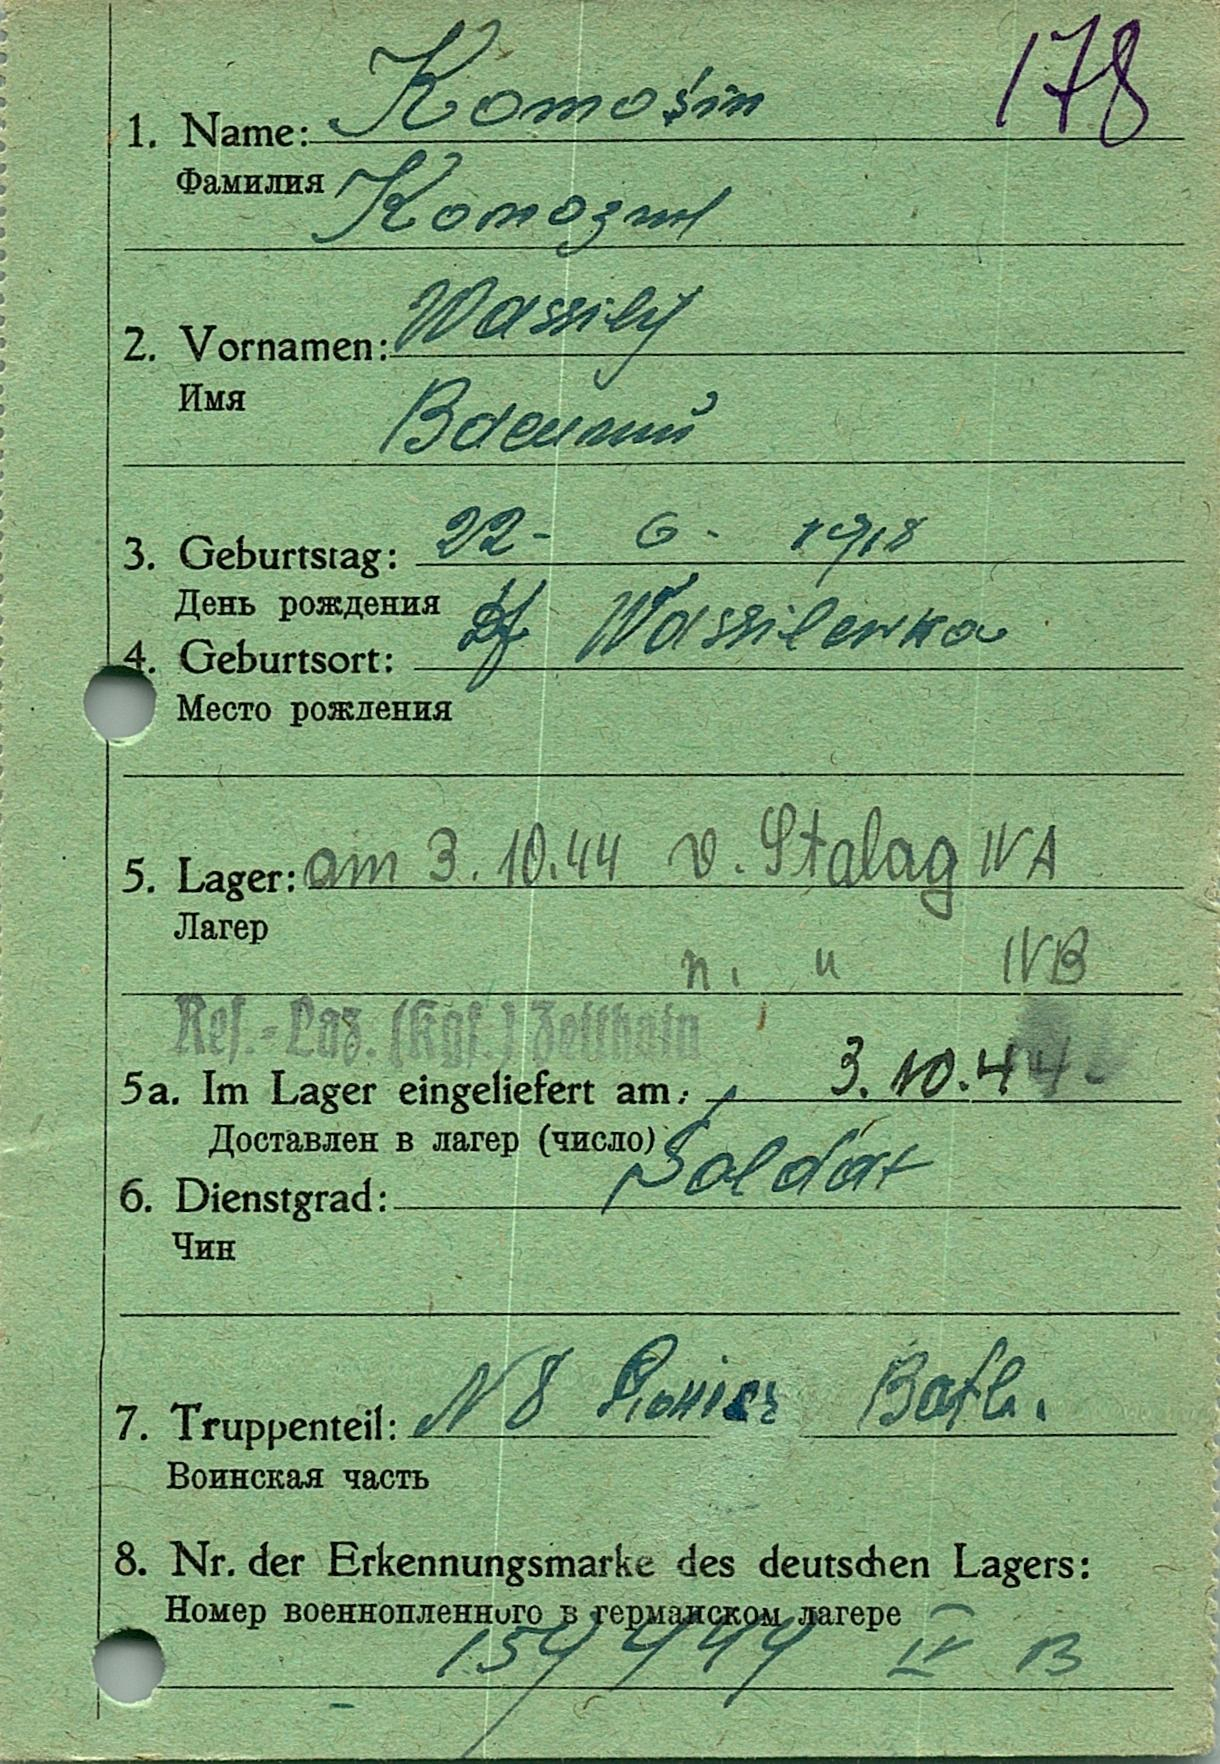 178
1. Name: Komosin
Фамилия Комозин
2. Vornamen: Wassilij
Имя Василий
3. Geburtstag: 22- 6- 1918
День рождения
4. Geburtsort: Df Wassilewka
Место рождения
5. Lager: am 3.10.44 v. Stalag IV A
Лагер
n. " IV B
Res.-Laz. (Kgf.) Zeithain
5a. Im Lager eingeliefert am: 3.10.44
Доставлен в лагер (число)
6. Dienstgrad: Soldat
Чин
7. Truppenteil: N 8 Pionier Batl.
Воинская часть
8. Nr. der Erkennungsmarke des deutschen Lagers:
Номер военнопленного в германском лагере
IV B